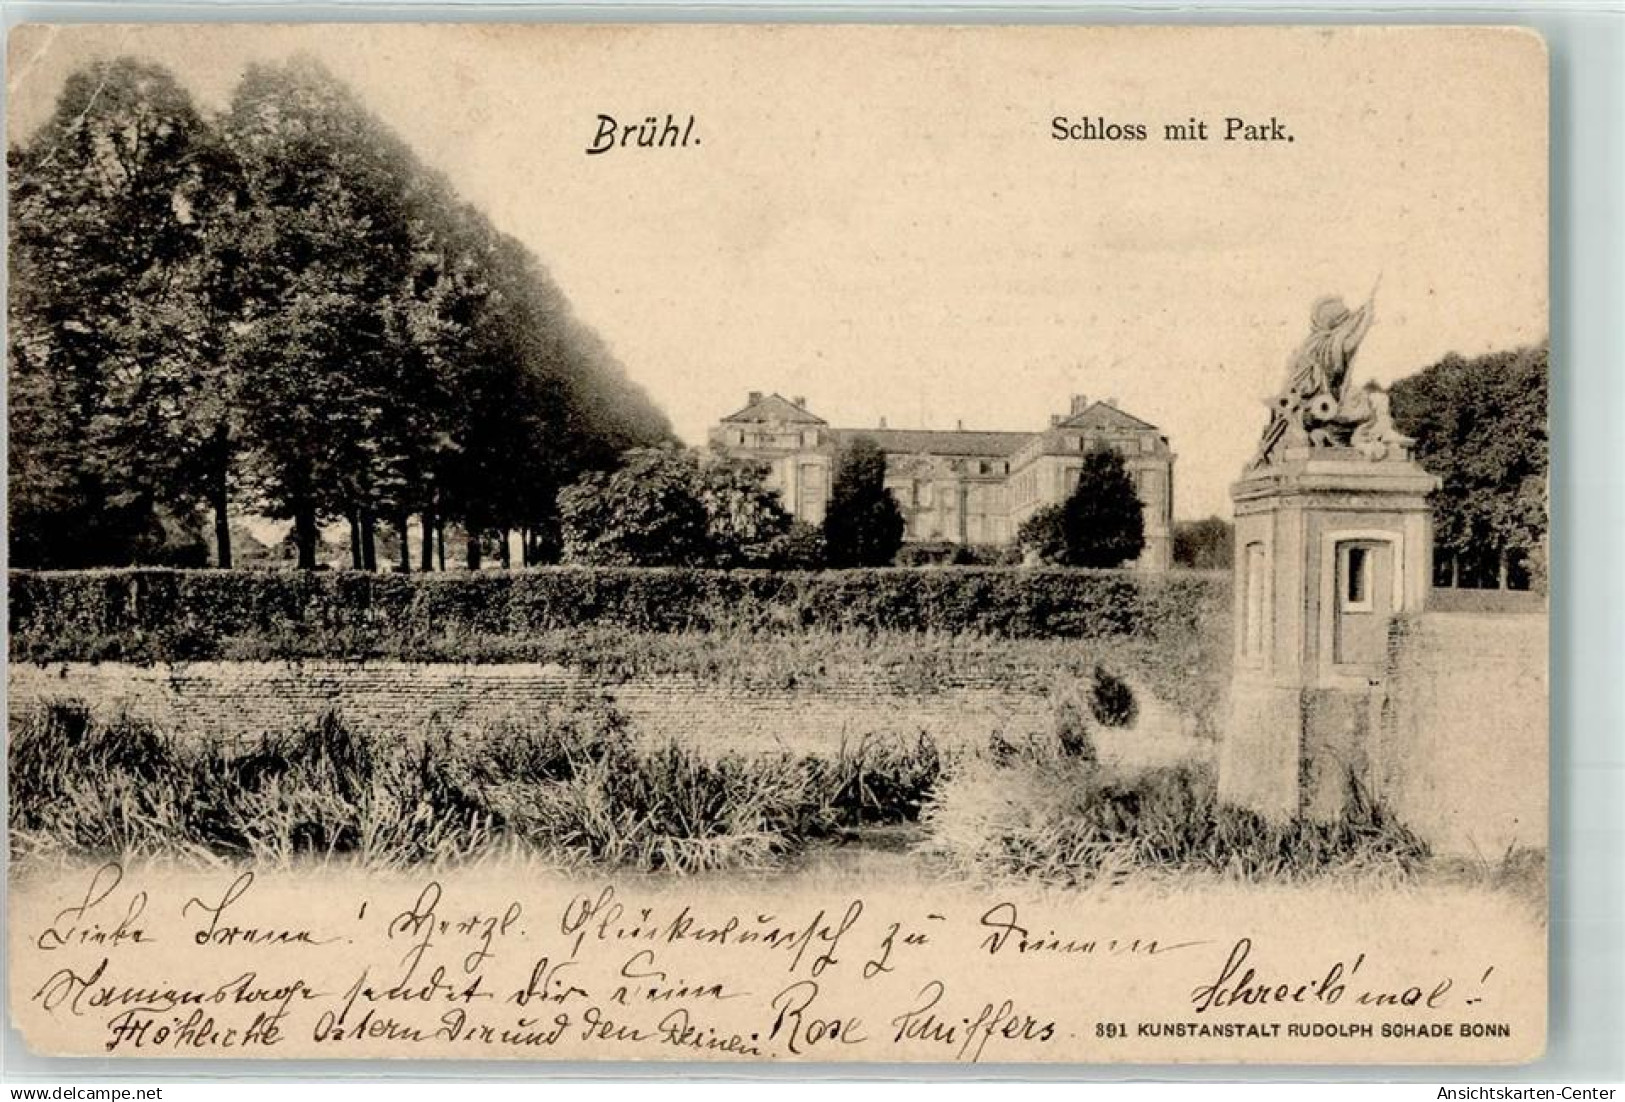 Brühl.
Schloss mit Park.
Liebe Irene! Herzl. Glückwunsch zu Deinem
Namenstage sendet Dir Deine
Fröhliche Ostern Dir und den Deinen. Rose Schiffers
Schreib' mal!
891 KUNSTANSTALT RUDOLPH SCHADE BONN
delcampe.net
Ansichtskarten-Center